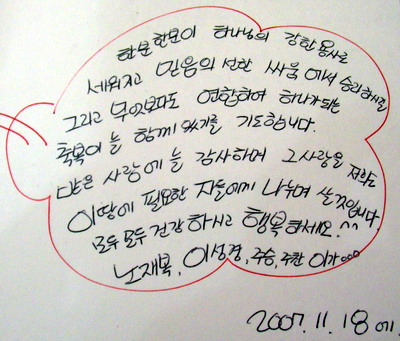 한분한분이 하나님의 강한용사로
세워지고 믿음의 선한 싸움에서 승리하시길
그리고 무엇보다도 연합하여 하나가되는
축복이 늘 함께 있기를 기도합니다.
많은 사랑에 늘 감사하며 그사랑을 저희도
이땅에 필요한 자들에게 나누며 살것입니다.
모두 모두 건강하시고 행복하세요^^
노재복, 이성경, 주승, 주찬 이가...
2007. 11. 18에.